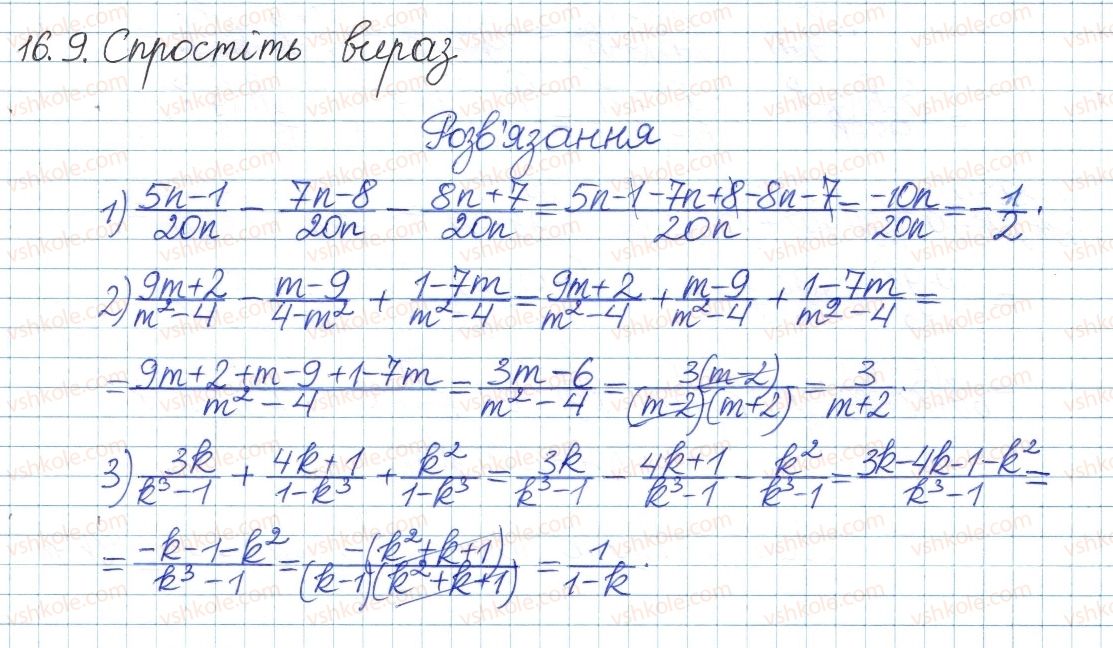 16.9. Спростіть вираз
Розв'язання
1) (5n-1)/(20n) - (7n-8)/(20n) - (8n+7)/(20n) = (5n-1-7n+8-8n-7)/(20n) = (-10n)/(20n) = -1/2.
2) (9m+2)/(m²-4) - (m-9)/(4-m²) + (1-7m)/(m²-4) = (9m+2)/(m²-4) + (m-9)/(m²-4) + (1-7m)/(m²-4) =
= (9m+2+m-9+1-7m)/(m²-4) = (3m-6)/(m²-4) = (3(m-2))/((m-2)(m+2)) = 3/(m+2).
3) (3k)/(k³-1) + (4k+1)/(1-k³) + (k²)/(1-k³) = (3k)/(k³-1) - (4k+1)/(k³-1) - (k²)/(k³-1) = (3k-4k-1-k²)/(k³-1) =
= (-k-1-k²)/(k³-1) = (-(k²+k+1))/((k-1)(k²+k+1)) = 1/(1-k).